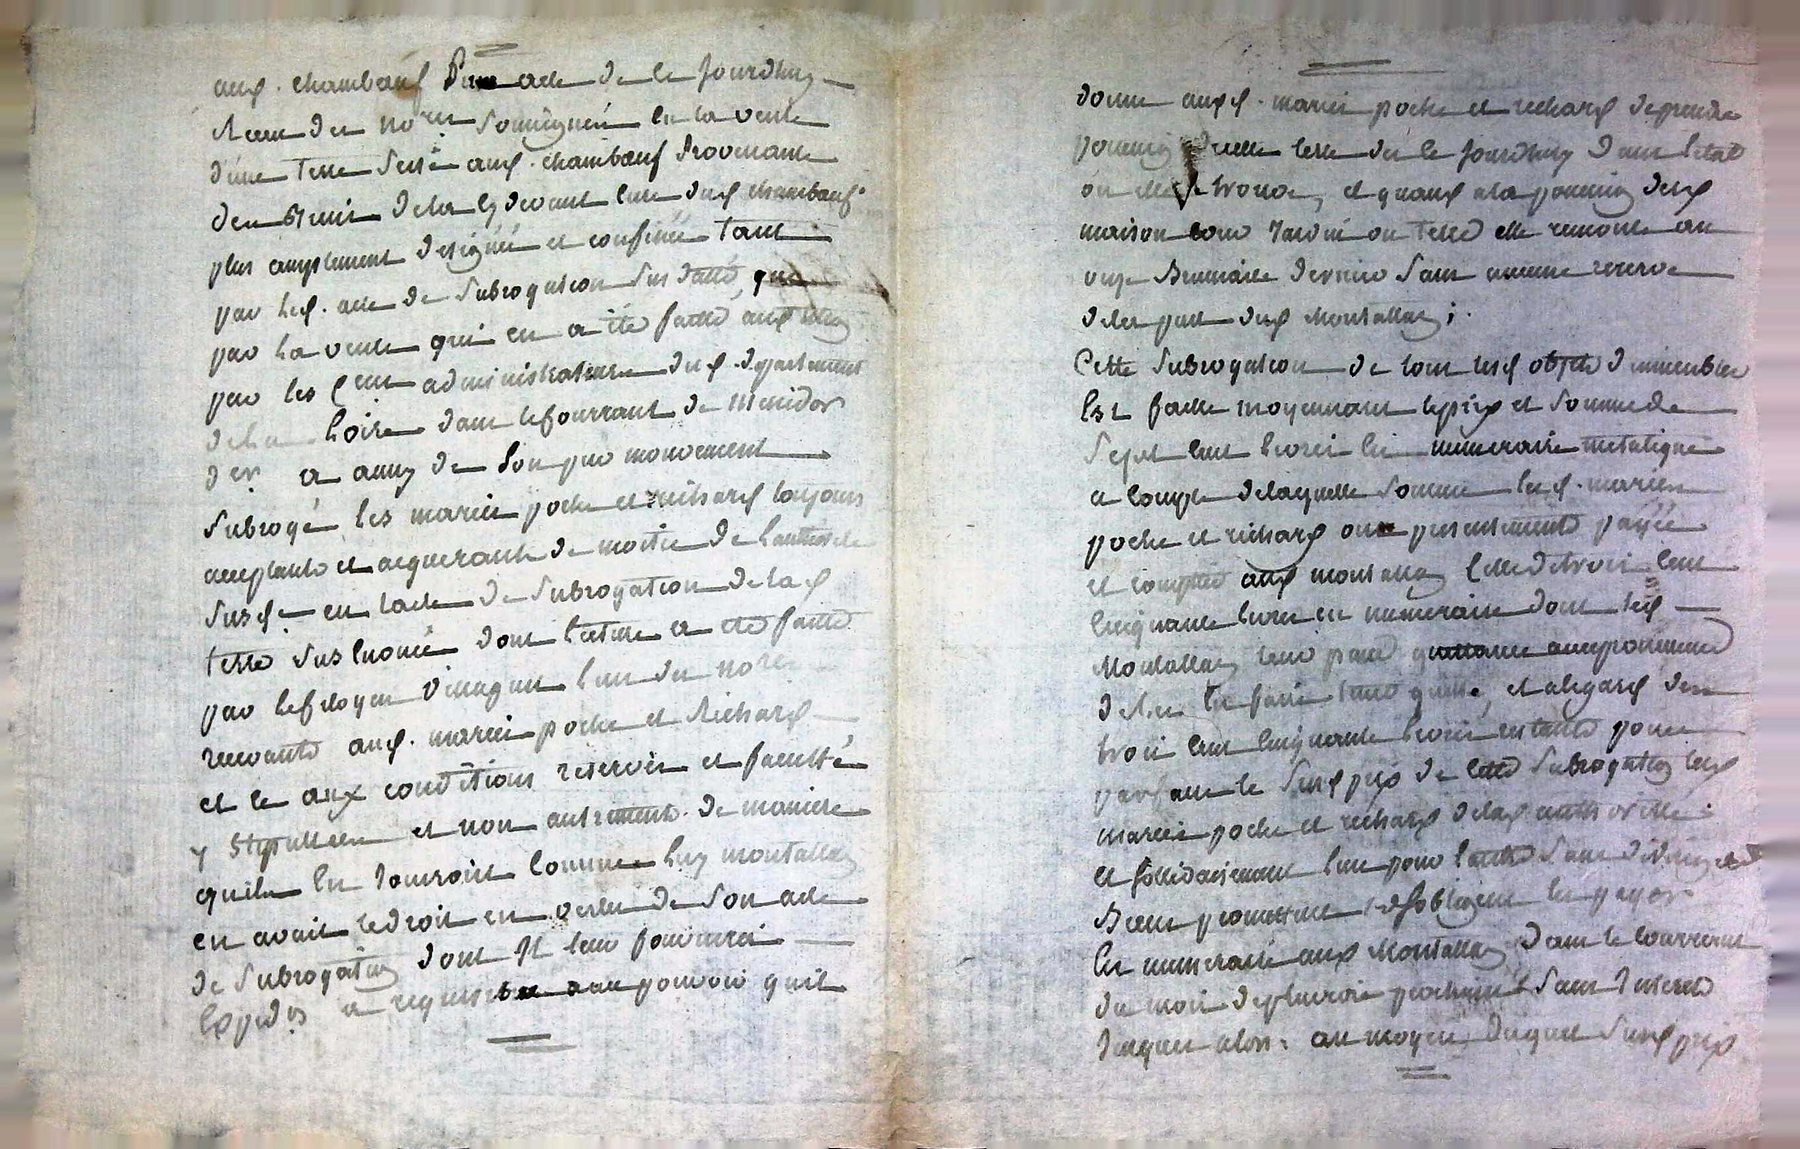 aud. chambœuf Par acte de ce jourdhuy
Receu des no.res Soussignés en la vente
d'une terre Sise aud. chambœuf Provenante
des biens de la cy devant cure dud chambœuf
plus amplement designée et confinée tant
par led. acte de Subrogation Sus datté, que
par la vente qui en a été faitte aud
par les administrateurs dud. departement
de la Loire dans le courrant de Messidor
der. a aussy de Son pur mouvement
Subrogé les mariés poche et richard toujours
acceptants et acquerants de moitie de l'authorité
Susd. en l'acte de Subrogation de lad
terre Sus énoncée dont lecture a été faitte
par le citoyen l'un des no.res
recevants aud. mariés poche et Richard
et ce aux conditions reserves et facultés
y Stipullées et non autrement de maniere
quils en jouiront comme luy montallay
en avait le droit en vertu de Son acte
de Subrogation dont Il leur fournira
expedon a requisition pouvoir quil
donne auxd. mariés poche et richard de prendre
possession d'icelle terre dès ce jourdhuy dans l'état
ou elle Se trouve, et quand a la possession desd
maison cour Jardin ou terre elle remonte au
onze Brumaire dernier Sans aucune reserve
de la part dud Montallay;
Cette Subrogation de tous lesd objets d'immeubles
Est faitte moyennant le prix et Somme de
Sept cent livres en numeraire metalique
a compte de laquelle Somme lesd. mariés
poche et richard ont presentement payée
et comptée aud montallay celle de trois cent
cinquante livres en numeraire dont led
Montallay leur passe quittance avec promesse
de les en faire tenir quitte, et a legard des
trois cent cinquante livres restants pour
parfaire le Susd prix de cette Subrogation lesd
mariés poche et richard de lad authorité
et Sollidairement l'un pour l'autre Sans division
promettent et S'obligent les payer
en numeraire aud Montallay dans le courrant
du mois de pluviose prochain Sans Interets
jusques alors. au moyen duquel Susd prix